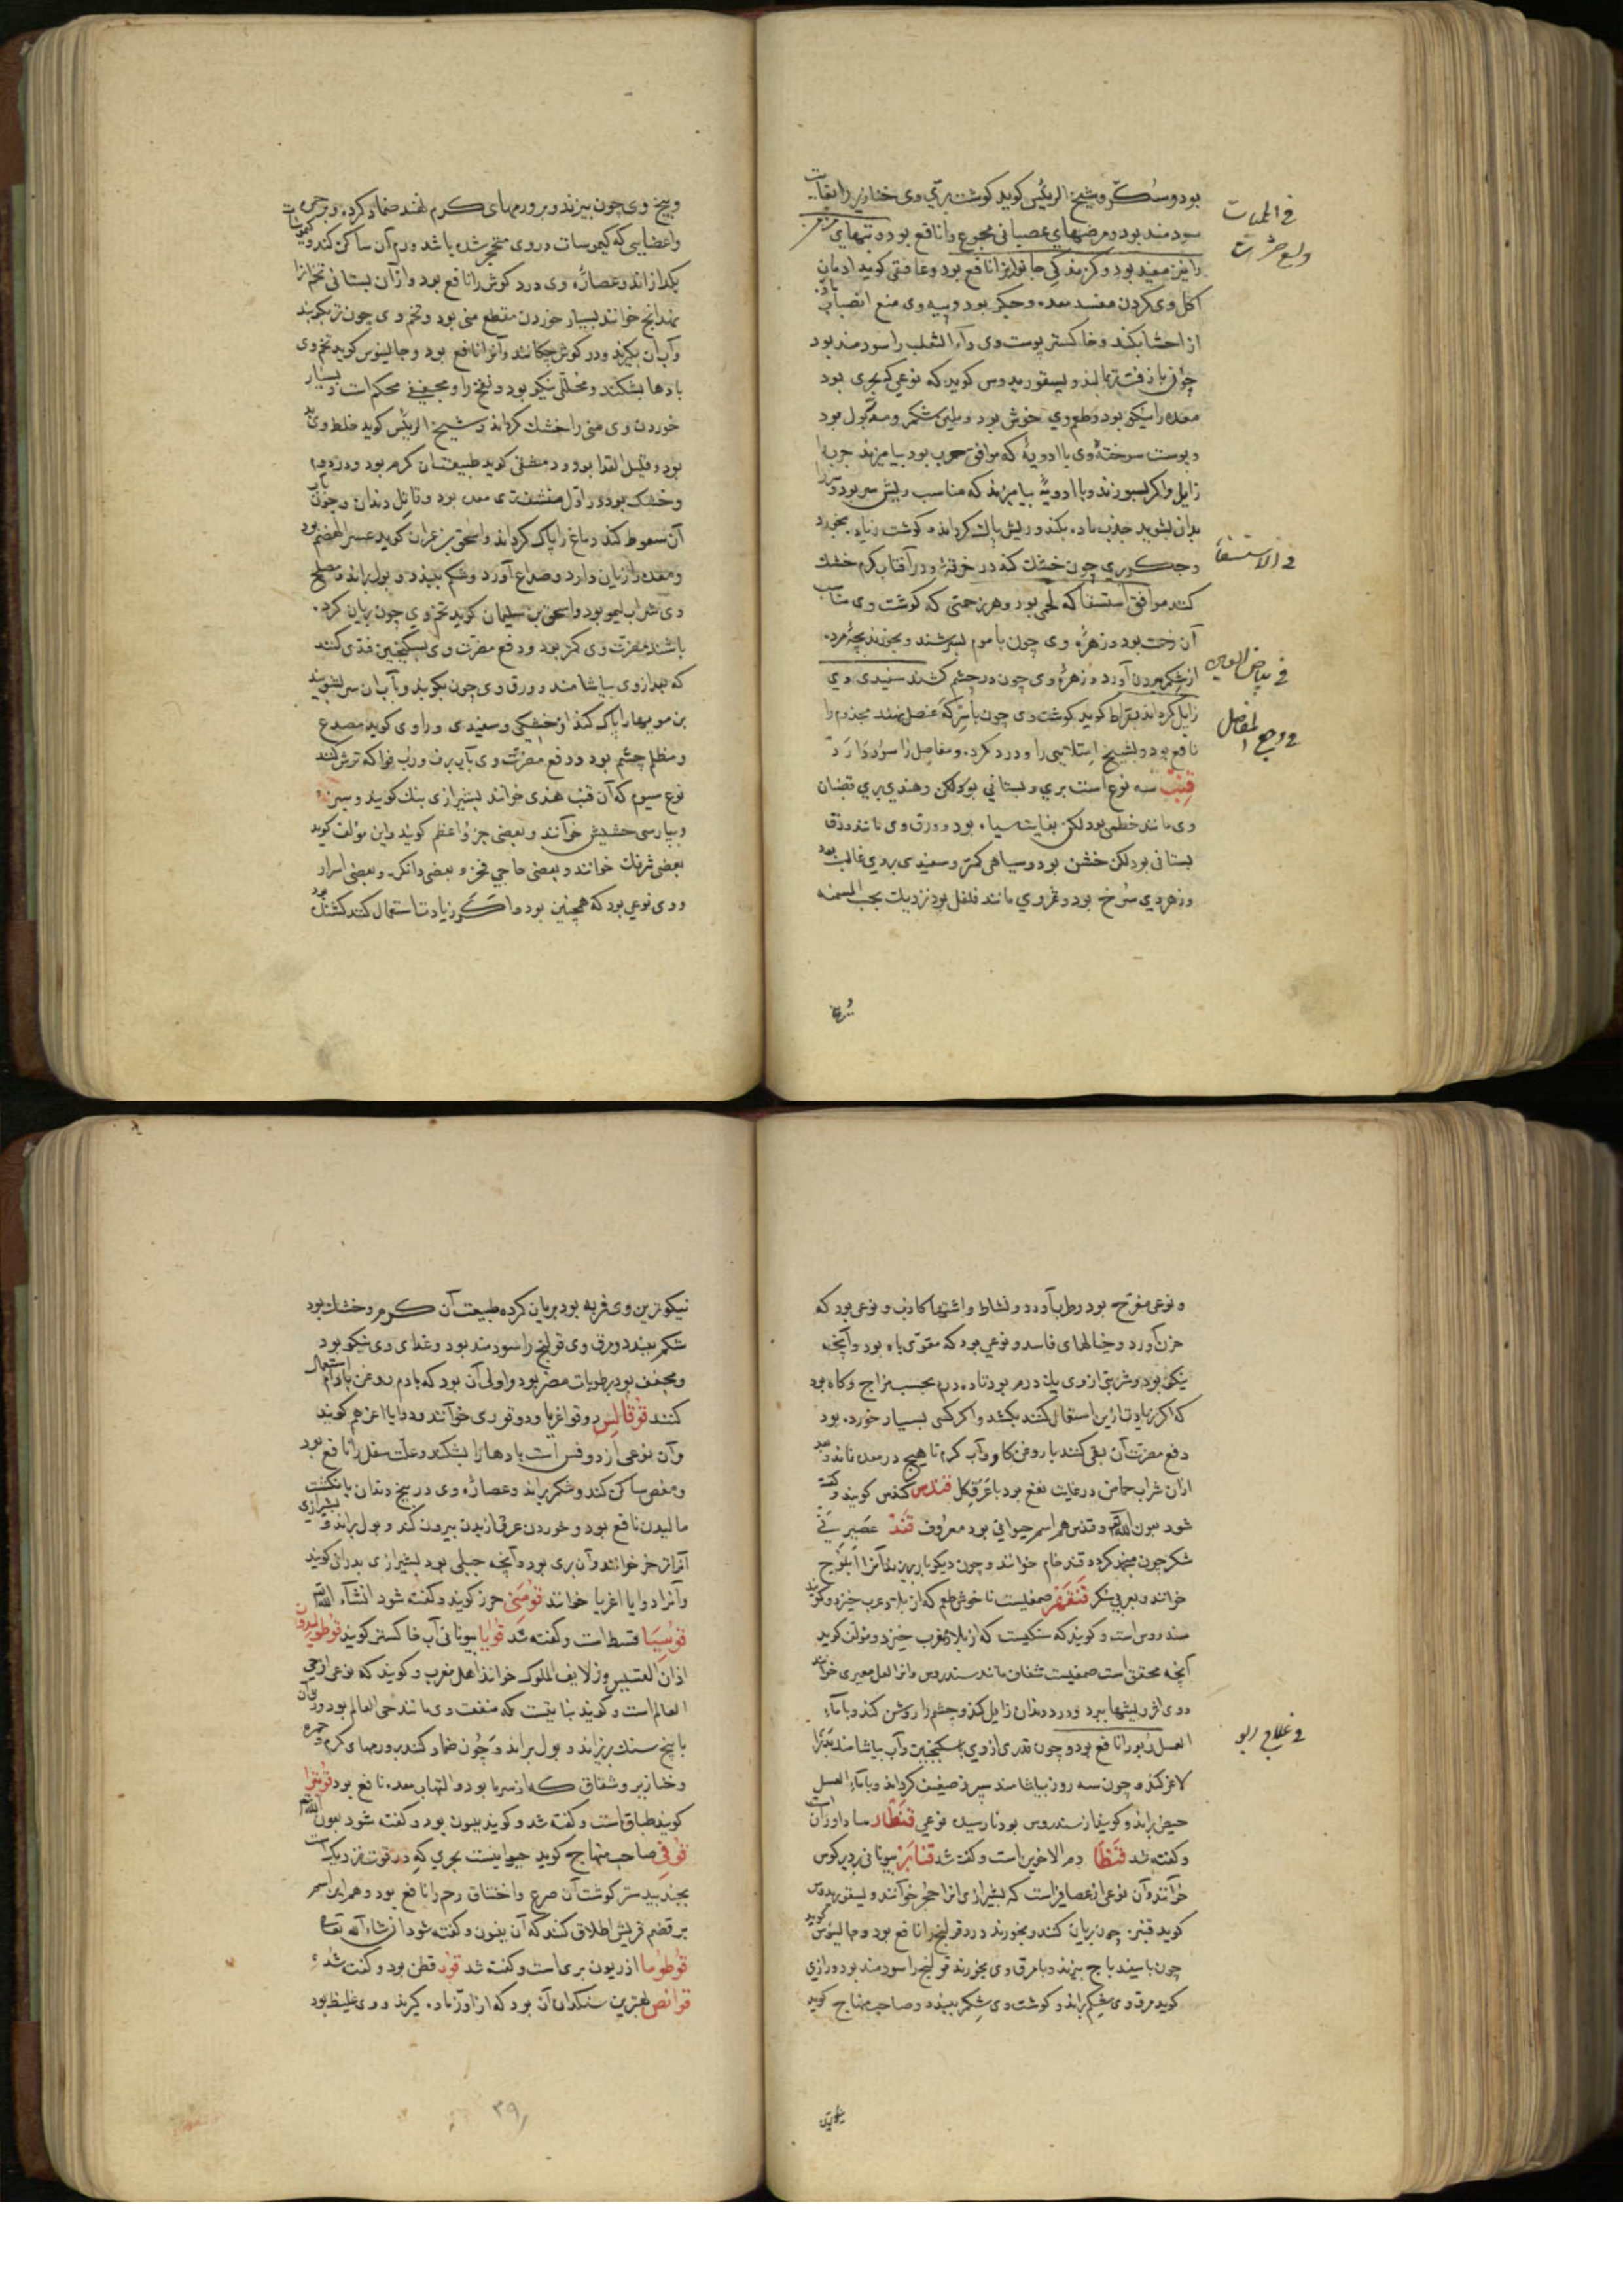 بود و سکر و شیخ الرئیس کوید کوشت بری وی خنازیر را بغایت
سودمند بود و مرضهای عصبانی مجموع را نافع بود و تبهای مزمن
را نیز مفید بود و کزیدکی جانوران را نافع بود و غافقی کوید ادمان
اکل وی کردن مفسد معده و جکر بود و پیه وی منع انصباب مواد
از احشا بکند و خاکستر پوست وی داء الثعلب را سودمند بود
چون با زفت تر بمالند و دیسقوریدوس کوید که نوعی که بحری بود
معده را نیکو بود و طعم وی خوش بود و ملین شکم و مدر بول بود
و پوست سوخته وی با ادویه که موافق جرب بود بیامیزند جرب را
زایل و اکر بسوزند و با ادویه بیامیزند که مناسب ریش سر بود و سر را
بدان بشویند جذب ماده بکند و ریش پاک کرداند و کوشت زیاده بخورد
و جکر وی چون خشک کند در خرقه و در آفتاب کرم خشک
کنند موافق استسقا که لحمی بود و هر زحمتی که کوشت وی مناسب
آن زحمت بود و زهره وی چون با موم بسرشند و بخورند بچه مرده
از شکم بیرون آورد و زهره وی چون در چشم کشند سفیدی وی
زایل کرداند بقراط کوید کوشت وی چون با سرکه عنصل بپزند مجذوم را
نافع بود و تشنج امتلایی را و درد کرده و مفاصل را سود دارد
قنب سه نوع است بری و بستانی بود لکن و هندی بری قضبان
وی مانند خطمی بود لکن بغایت سیاه بود و ورق وی مانند ورق
بستانی بود لکن خشن بود و سیاهی کمتر و سفیدی بر وی غالب بود
و زهر وی سرخ بود و ثمر وی مانند فلفل بود نزدیک بحب السمنه
فی الحمیات
و لسع حشرات
فی الاستسقا
فی بیاض العین
فی وجع المفاصل
و بیخ وی چون بپزند و بر ورمهای کرم نهند ضماد کرده و بر جمره
واعضایی که کیموسات در وی متحجر شده باشد ورم آن ساکن کند و کیموسات
بکدازاند و عصاره وی درد کوش را نافع بود و از آن بستانی تخم آنرا
شهدانج خوانند بسیار خوردن مقطع منی بود و تخم وی چون تر بکوبند
و آب آن بکیرند و در کوش چکانند و آنرا نافع بود و جالینوس کوید تخم وی
بادها بشکند و محللی نیکو بود و نفخ را و مجففی محکم است و بسیار
خوردن وی منی را خشک کرداند و شیخ الرئیس کوید خلط وی بد
بود و قلیل الغذا بود و دمشقی کوید طبیعت آن کرم بود در دویم
و خشک بود در اول منشف تری معده بود و قاتل دیدان و چون باب
آن سعوط کند دماغ را پاک کرداند و اسحق بن عمران کوید عسر الهضم بود
و معده را زیان دارد و صداع آورد و شکم ببندد و بول براند و مصلح
وی شراب لیمو بود و اسحق بن سلیمان کوید تخم وی چون بریان کرده
باشند مضرت وی کمتر بود و دفع مضرت وی بسکنجبین قندی کنند
که بعد از وی بیاشامند و ورق وی چون بکوبند و بآب آن سر بشویند
بن مویها را پاک کند از خشکی و سفیدی و راوی کوید مصدع
و مظلم چشم بود و دفع مضرت وی بآب برف و رب فواکه ترش کنند
نوع سیوم که آن قنب هندی خوانند بشیرازی بنک کویند و سبزه
و بپارسی حشیش خوانند و بعضی جزو اعظم کویند و این مولف کوید
بعضی شرنک خوانند و بعضی حاجی فخر و بعضی دانک و بعضی اسرار
و وی نوعی بود که همچنین بود و اکر زیادت استعمال کنند کشنده بود
و نوعی مفرح بود و طرب آورد و نشاط و اشتها کاذب و نوعی بود که
حزن آورد و خیالهای فاسد و نوعی بود که مقوی باه بود و آنچه
نیکو بود و شربتی از وی یک درم بود تا ده درم بحسب مزاج و کاه بود
که اکر زیادت از این استعمال کنند بکشد و اکر کسی بسیار خورده بود
دفع مضرت آن بقی کنند با روغن کاو و آب کرم تا هیچ در معده نماند و بعد
ازان شراب حماض در غایت نفع بود با عرق کل قندس کندس کویند و کفته
شود بعون الله و قندس هم اسم حیوانی بود معروف قند عصیر نی
شکر چون منجمد کردد قند خام خوانند و چون دیکر بار بپزند آنرا ابلوج
خوانند و بعربی سکر قنقهر صمغیست ناخوش طعم که از بلاد عرب خیزد و کویند
سندروس است و کویند که سنکیست که از بلاد مغرب خیزد و مولف کوید
آنچه محقق است صمغیست شفاف مانند سندروس و آنرا لعل معبری خوانند
و وی اثر ریشها ببرد و درد دندان زایل کند و چشم را روشن کند و با ماء
العسل ربو را نافع بود و چون قدری از وی بسکنجبین و آب بیاشامند بدن را
لاغر کند و چون سه روز بیاشامند سپرز ضعیف کرداند و با ماء العسل
حیض براند و کویند از سندروس بود نارسیده نوعی قنطار ساداوران است
و کفته شد قنطا دم الاخوین است و کفته شد قنابر بیونانی بردیرکوس
خوانند و آن نوعی از عصافیر است که بشیرازی آنرا حجلر خوانند و دیسقوریدوس
کوید قنبر چون بریان کنند و بخورند درد قولنج را نافع بود و جالینوس کوید
چون با سفیدباج بپزند و با مرق وی بخورند قولنج را سودمند بود و رازی
کوید مرق وی شکم براند و کوشت وی شکم ببندد و صاحب منهاج کوید
فی علاج ربو
نیکوترین وی فربه بود بریان کرده طبیعت آن کرم و خشک بود
شکم ببندد و مرق وی قولنج را سودمند بود و غذای وی نیکو بود
و مجفف بود برطوبات مضر بود و اولی آن بود که با دم روغن بادام استعمال
کنند قوقالس دوقوا غریا و دوقو بری خوانند و دوایا اغرهم کویند
و آن نوعی از دوقس است بادها را بشکند و علت سفل را نافع بود
و مغص ساکن کند و شکم براند و عصاره وی در بیخ دندان با نکشت
مالیدن نافع بود و خوردن عرق از بدن بیرون کند و بول براند و بشیرازی
آنرا تر خر خوانند و آن بری بود و آنچه جبلی بود بشیرازی بدران کویند
و آنرا دوایا اغریا خوانند قومنی حرز کویند و کفته شود انشاء الله
قوسیا قسط است و کفته شد قونیا بیونانی آب خاکستر کویند قوطولیدون
اذان القسیس و زلایف الملوک خوانند اهل مغرب و کویند که نوعی از حی
العالم است و کویند نباتیست که منفعت وی مانند حی العالم بود و ورق آن
با بیخ سنک بریزاند و بول براند و چون ضماد کنند بر ورمهای کرم و جمره
و خنازیر و شقاق که از سرما بود و التهاب معده نافع بود قونیزا
کویند طباق است و کفته شد و کویند ینبون بود و کفته شود بعون الله
قوفی صاحب منهاج کوید حیوانیست بحری که در قوت نزدیک است
بجند بیدستر کوشت آن صرع و اختناق رحم را نافع بود و هم این اسم
بر قضم قریش اطلاق کنند که آن ینبوت و کفته شود انشاء الله تعالی
قوطوما اذریون بری است و کفته شد قود قطن بود و کفته شد
قوانص بهترین سنکدان آن بود که از اوز ماده کیرند و وی غلیظ بود
۳۹